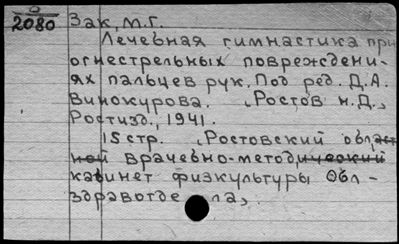 2080 Зак, М.Г.
Лечебная гимнастика при
огнестрельных повреждени-
ях пальцев рук. Под ред. Д.А.
Винокурова. „Ростов н.Д.,
Ростизд., 1941.
15 стр. „Ростовский област
ной врачебно-методический
кабинет физкультуры Обл-
здравотдела„.